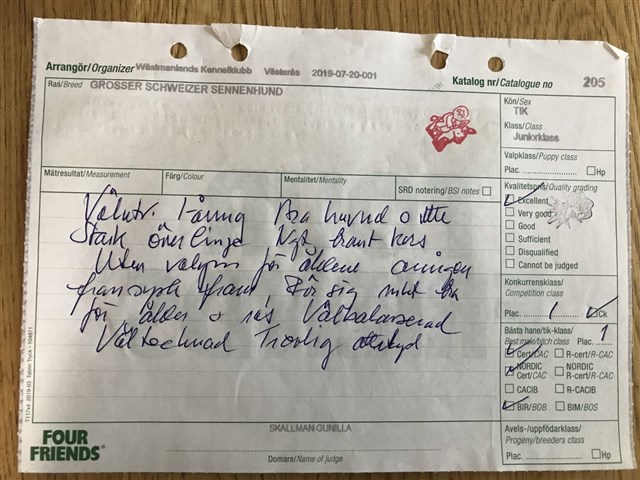 Arrangör/Organizer Västmanlands Kennelklubb Västerås 2019-07-20-001
Katalog nr/Catalogue no 205
Ras/Breed GROSSER SCHWEIZER SENNENHUND
Kön/Sex
TIK
Klass/Class
Juniorklass
Valpklass/Puppy class
Plac. Hp
Mätresultat/Measurement Färg/Colour Mentalitet/Mentality SRD notering/BSI notes
Kvalitetspris/Quality grading
Excellent
Very good
Good
Sufficient
Disqualified
Cannot be judged
Konkurrensklass/
Competition class
Plac. 1 Ck
Bästa hane/tik-klass/
Best male/bitch class Plac. 1
Cert/CAC R-cert/R-CAC
NORDIC Cert/CAC NORDIC R-cert/R-CAC
CACIB R-CACIB
BIR/BOB BIM/BOS
Avels-/uppfödarklass/
Progeny/breeders class
Plac. Hp
Bra huvud o
Stark överlinje Ngt brant kors
för åldern
fram, Rör sig mkt bra
för ålder o ras Välbalanserad
Trevlig attityd
T1174 2019-03
SKALLMAN GUNILLA
Domare/Name of judge
FOUR
FRIENDS®